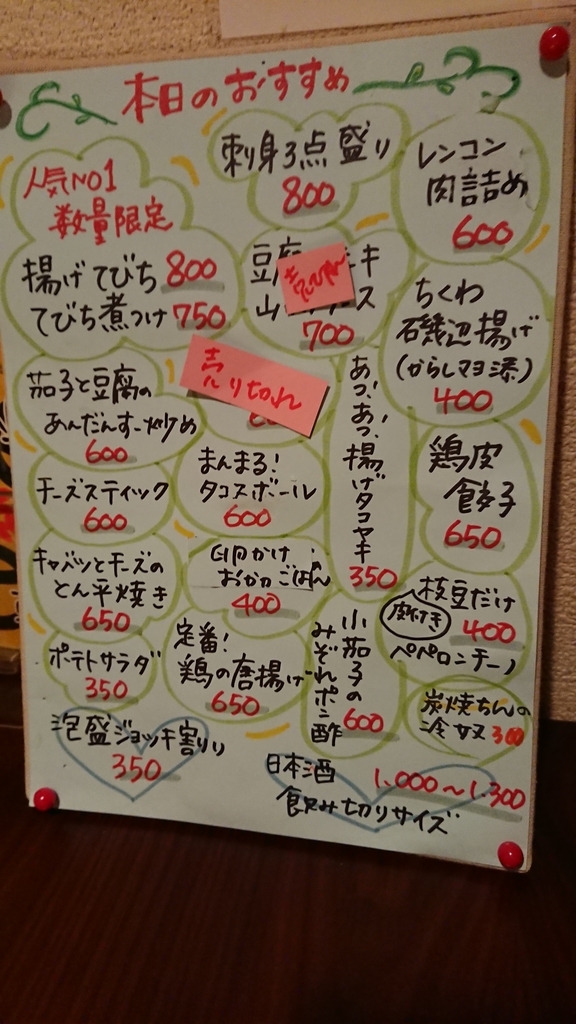 本日のおすすめ
人気NO1
数量限定
揚げてびち 800
てびち煮つけ 750
刺身3点盛り
800
レンコン
肉詰め
600
豆腐 キ
山 ス
700
売り切れ
ちくわ
磯辺揚げ
(からしマヨ添)
400
茄子と豆腐の
あんだんすー炒め
600
売り切れ
あつ、あつ、揚げタコヤキ
350
鶏皮
餃子
650
チーズスティック
600
まんまる!
タコスボール
600
キャベツとチーズの
とん平焼き
650
卵かけ
おかかごはん
400
枝豆だけ
皮付き
400
ペペロンチーノ
ポテトサラダ
350
定番!
鶏の唐揚げ
650
小茄子の
みぞれポン酢
600
炭焼ちんの
冷奴 300
泡盛ジョッキ割り
350
日本酒 1,000〜1,300
飲み切りサイズ